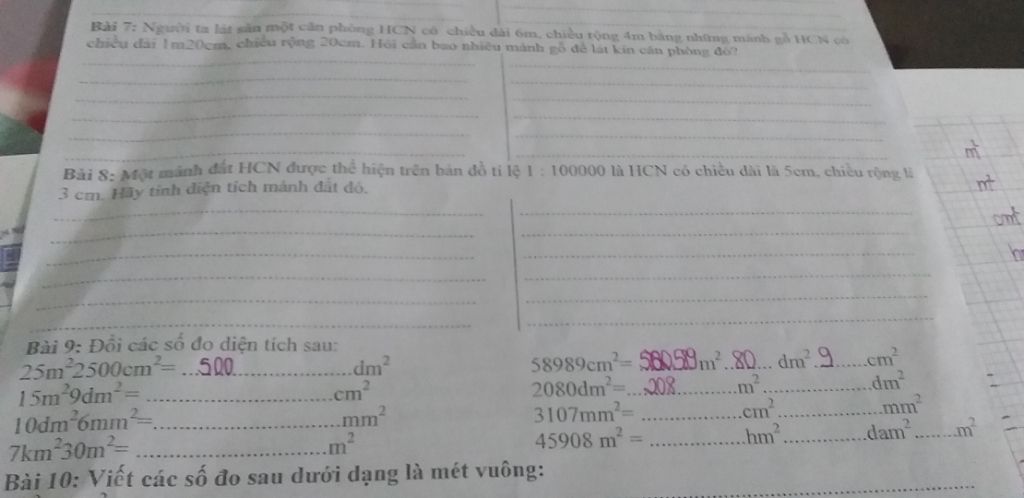 Bài 7: Người ta lát sàn một căn phòng HCN có chiều dài 6m, chiều rộng 4m bằng những mảnh gỗ HCN có
chiều dài 1m20cm, chiều rộng 20cm. Hỏi cần bao nhiêu mảnh gỗ để lát kín căn phòng đó?
Bài 8: Một mảnh đất HCN được thể hiện trên bản đồ tỉ lệ 1 : 100000 là HCN có chiều dài là 5cm, chiều rộng là
3 cm. Hãy tính diện tích mảnh đất đó.
m²
m²
cm²
Bài 9: Đổi các số đo diện tích sau:
25m²2500cm²= ..500....................dm²
15m²9dm²= ..........................cm²
10dm²6mm²=..........................mm²
7km²30m²= ..........................m²
58989cm²= m²..80... dm².9.....cm²
2080dm²=...208..........m²..................dm²
3107mm²= ...............cm²................mm²
45908 m² = ..............hm².............dam²........m²
Bài 10: Viết các số đo sau dưới dạng là mét vuông: